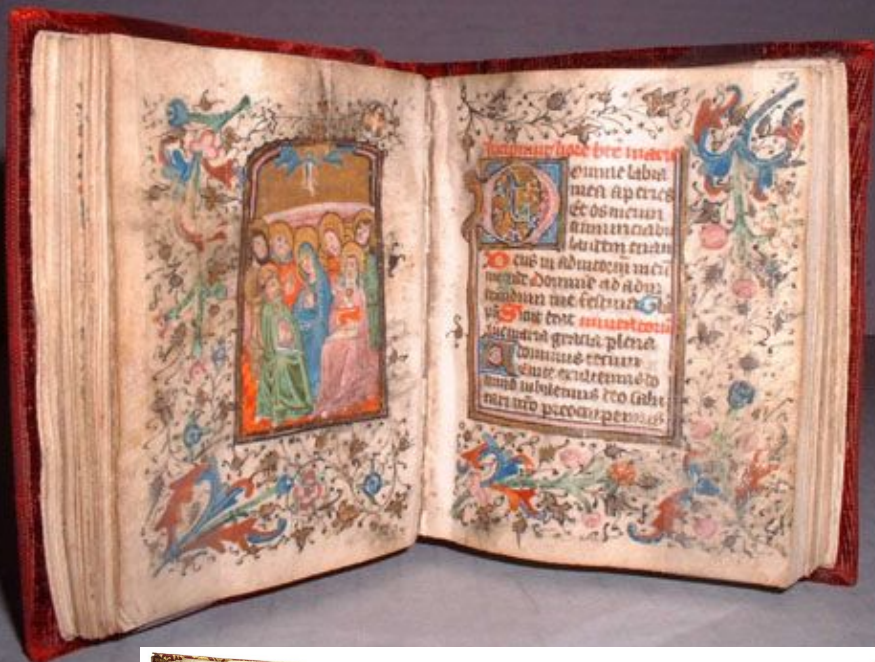 Incipiunt hore bte marie
Domine labia
mea aperies
Et os meum
annunciabit
laudem tuam
Deus in adiutoriū meū
intende Domine ad adiu
uandum me festina Gla
pri Sicut erat
Aue maria gracia plena
dominus tecum
uenite exultemus do
mino iubilemus deo salu
tari nro preoccupemus